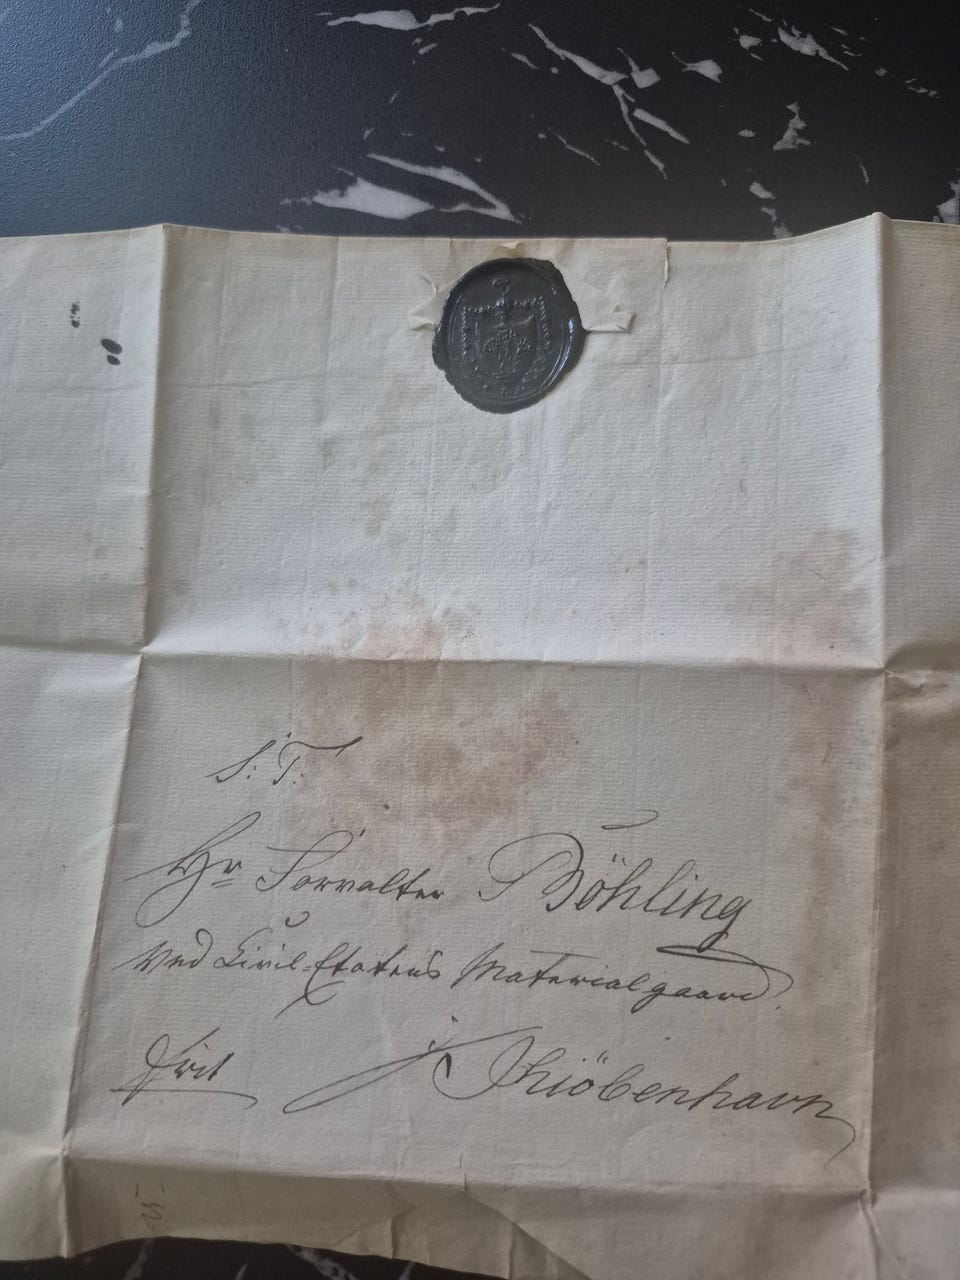 S: T:
Hr Forvalter Böhling
ved Civil-Etatens Materialgaard.
frit
i Kiöbenhavn